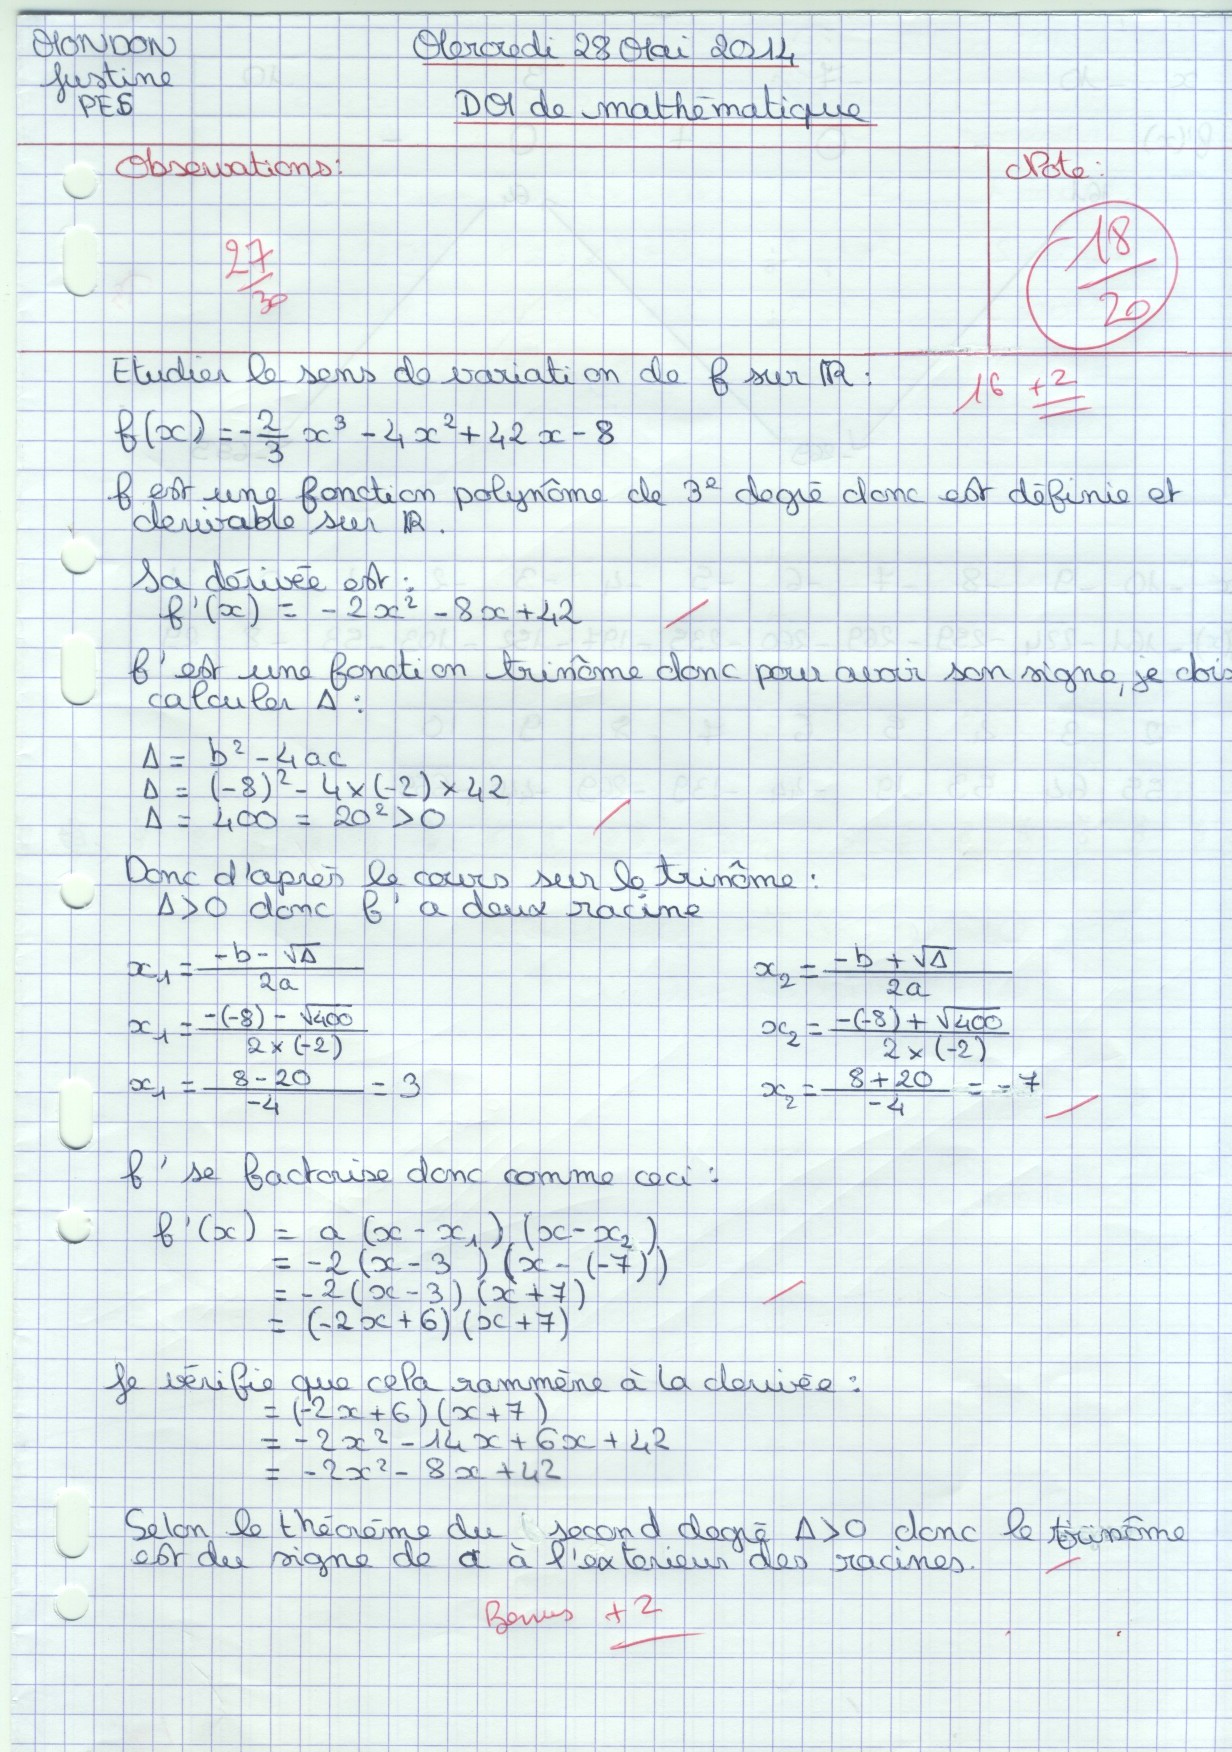 MONDON
Justine
PES
Mercredi 28 Mai 2014
DM de mathématique
Observations:
Note:
27/30
18/20
16 +2
Etudier le sens de variation de f sur ℝ:
f(x) = -2/3 x³ - 4x² + 42x - 8
f est une fonction polynôme de 3e degré donc est définie et
derivable sur ℝ.
Sa dérivée est:
f'(x) = -2x² - 8x + 42
f' est une fonction trinôme donc pour avoir son signe, je dois
calculer Δ:
Δ = b² - 4ac
Δ = (-8)² - 4×(-2)×42
Δ = 400 = 20² > 0
Donc d'après le cours sur le trinôme:
Δ>0 donc f' a deux racine
x₁ = (-b - √Δ)/2a
x₂ = (-b + √Δ)/2a
x₁ = (-(-8) - √400)/(2×(-2))
x₂ = (-(-8) + √400)/(2×(-2))
x₁ = (8-20)/-4 = 3
x₂ = (8+20)/-4 = -7
f' se factorise donc comme ceci:
f'(x) = a (x - x₁) (x - x₂)
= -2(x-3) (x-(-7))
= -2(x-3) (x+7)
= (-2x+6)(x+7)
Je vérifie que cela rammène à la derivée:
= (-2x+6)(x+7)
= -2x² - 14x + 6x + 42
= -2x² - 8x + 42
Selon le théorème du second degré Δ>0 donc le trinôme
est du signe de a à l'exterieur des racines.
Bonus +2